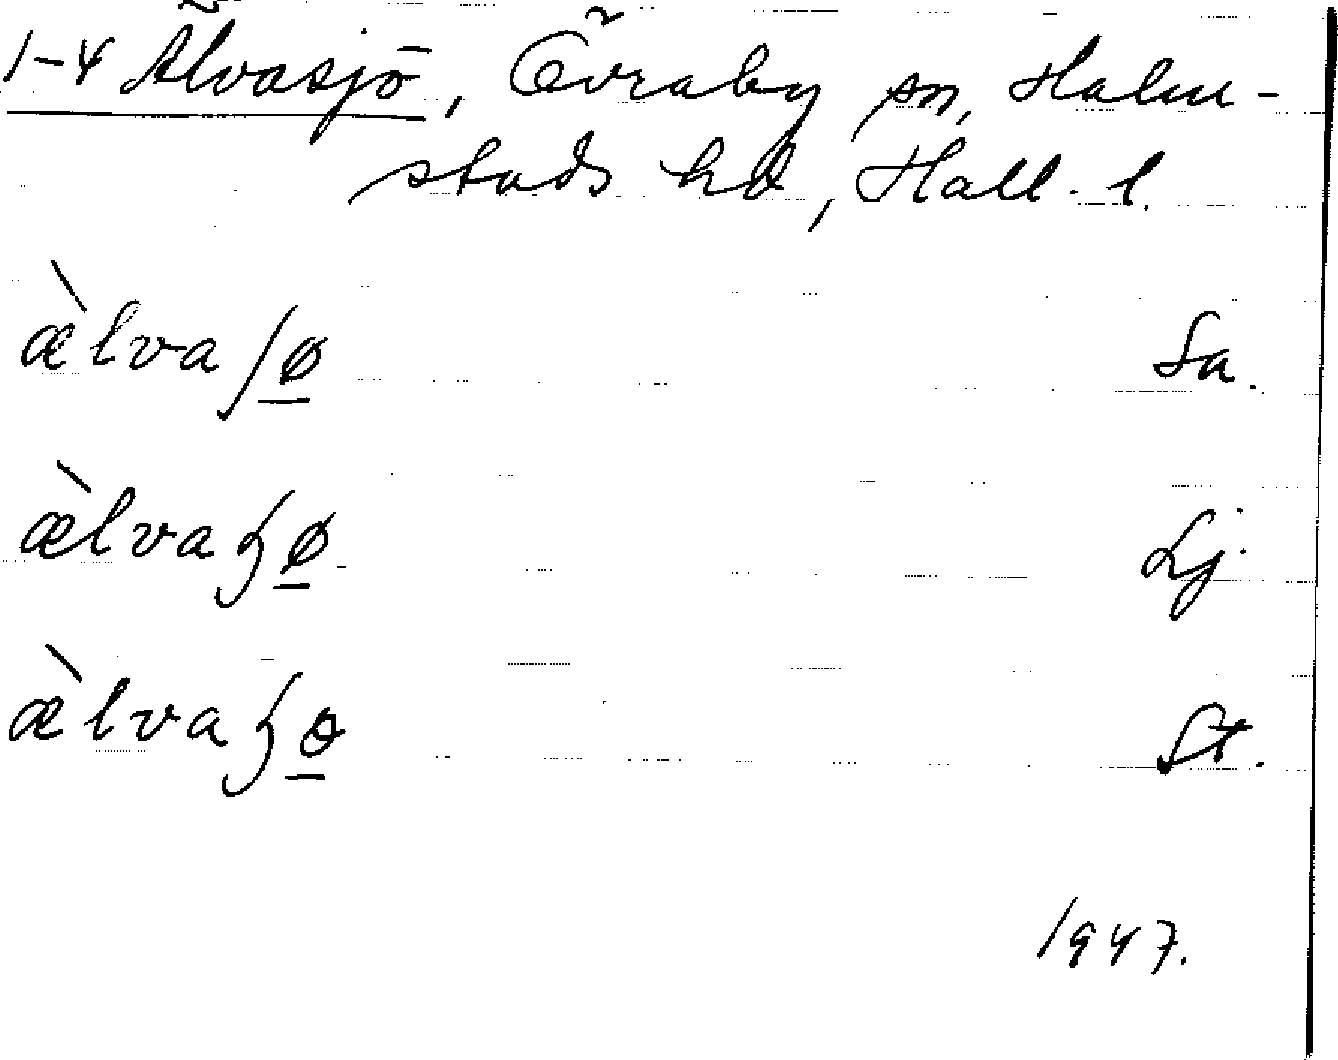 1-4 Älvasjö, Övraby sn, Halm-
stads hd, Hall. l.
æ̀lvaʃø̲ Sa.
æ̀lvaʒø̲ Lj.
æ̀lvaʒɵ̲ St.
1947.